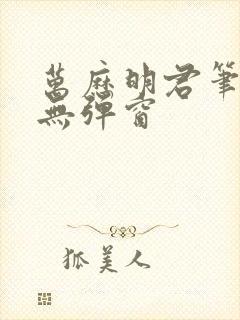 萬歷明君筆
無彈窗
狐美人